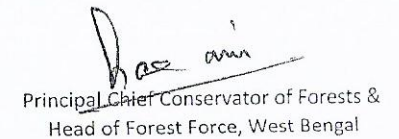 Principal Chief Conservator of Forests &
Head of Forest Force, West Bengal